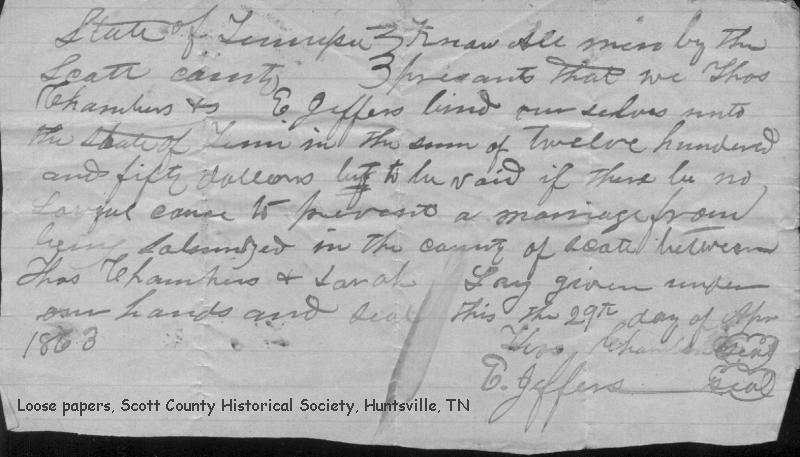 State of Tennessee } Know all men by the
Scott county } presants that we Thos
Chambers & E Jeffers bind our selves unto
the state of Tenn in the sum of twelve hundered
and fifty dollors but to be void if there be no
Lawful cause to prevent a marriage from
being solumized in the county of Scott between
Thos Chambers & Sarah Loy given under
our hands and seal this the 29th day of Apr
1863
Thos Chambers seal
E. Jeffers seal
Loose papers, Scott County Historical Society, Huntsville, TN